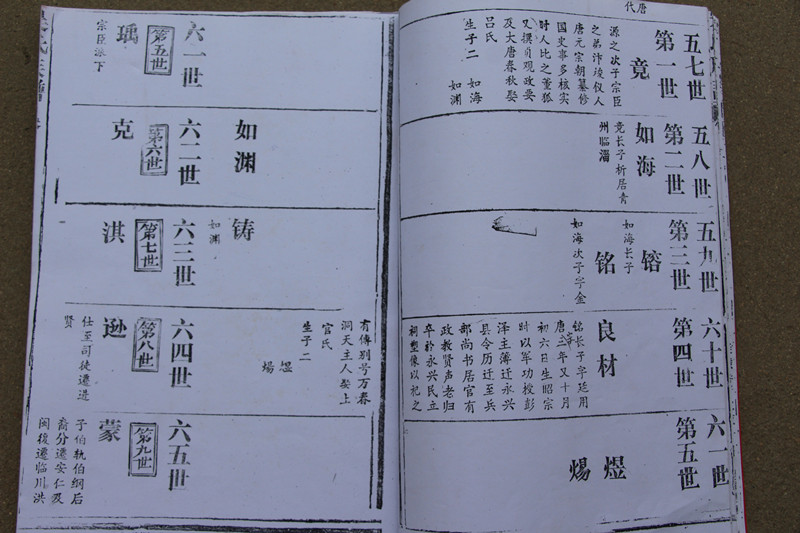 唐代
五七世
第一世
竟
源之次子宗臣
之弟汴竣仪人
唐元宗朝纂修
国史事多核实
时人比之董狐
又撰贞观政要
及大唐春秋娶
吕氏
生子二 如海
如渊
五八世
第二世
如海
竞长子析居青
州临淄
五九世
第三世
镕
如海长子
铭
如海次子字金
六十世
第四世
良材
铭长子字廷用
唐三年又十月
初六日生昭宗
时以军功授彭
泽主薄迁永兴
县令历迁至兵
部尚书居官有
政教贤声老归
卒於永兴民立
祠塑像以祀之
六一世
第五世
煜
煬
六一世
第五世
瑀
宗臣派下
如渊
六二世
第六世
克
铸
如渊
六三世
第七世
淇
有傅别号万春
洞天主人娶上
官氏
生子二
煜
煬
六四世
第八世
逊
仕至司徒遷进
贤
六五世
第九世
蒙
子伯轨伯纲后
裔分遷安仁及
闽後遷临川洪